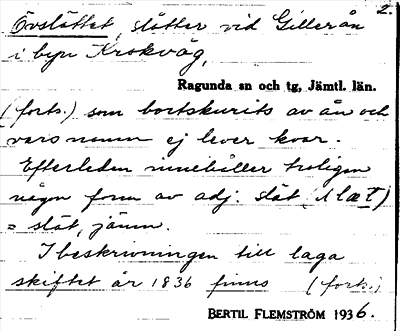 2.
Övslåttet, slåtter vid Gillerån
i byn Krokvåg,
Ragunda sn och tg, Jämtl. län.
(forts.) som bortskurits av ån och
vars namn ej lever kvar.
Efterleden innehåller troligen
någon form av adj. slät
= slät, jämn.
I beskrivningen till laga
skiftet år 1836 finns (forts.)
BERTIL FLEMSTRÖM 1936.